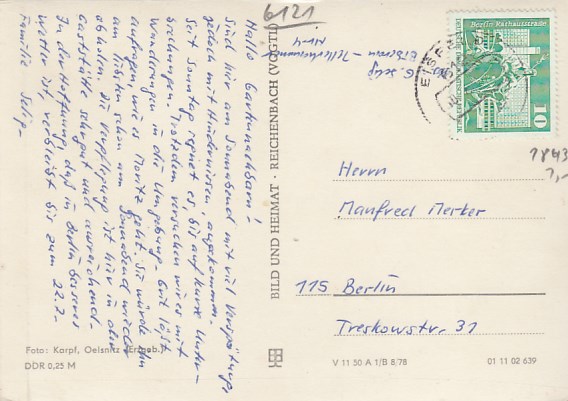 6121
Hallo Gartennachbarn!
Sind hier am Sonnabend mit viel Verspätung,
jedoch mit Hindernissen, angekommen.
Seit Sonntag regnet es, bis auf kurze Unter-
brechungen. Trotzdem versuchen wir es mit
Wanderungen in die Umgebung. Gerd läßt
anfragen, wie es Moritz geht. Sie würde ihn
am liebsten schon am Sonnabend wieder
abholen. Die Verpflegung ist hier in der
Gaststätte sehr gut und ausreichend.
In der Hoffnung, daß in Berlin besseres
Wetter ist, verbleibt bis zum 22.7.
Familie Selig.
Foto: Karpf, Oelsnitz (Erzgeb.)
DDR 0,25 M
BILD UND HEIMAT · REICHENBACH (VOGTL)
Berlin Rathausstraße
10
DDR
1843
1,-
Herrn
Manfred Merker
115 Berlin
Treskowstr. 31
V 11 50 A 1/B 8/78
01 11 02 639